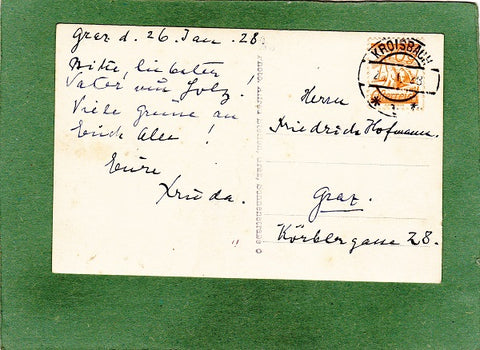 Graz d. 26. Jan. 28.
Bitte, liebster
Vater um Holz!
Viele Grüsse an
Euch Alle!
Eure
KROISBACH
Herrn
Friedrich Hofmann.
Graz.
Körblergasse 28.